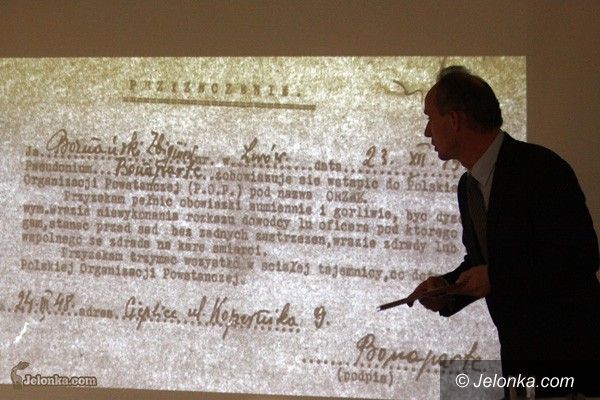 PRZYZECZENIE.
Ja Poznański Zbigniew ur. w Lwów data 23. XII
Pseudonim Bonaparte, zobowiązuje sie wstapic do Polskiej
Organizacji Powstanczej (P.O.P.) pod nazwa
Przysiekam pełnic obowiazki sumiennie i gorliwie, byc dys
razie niewykonania rozkazu dowodcy lub oficera pod ktorego
stanac przed sad bez zadnych zastrzezen, wrazie zdrady lub
wspolnego ze zdrada na kare smierci.
Przysiekam trzymac wszystko w scislej tajemnicy, co do
Polskiej Organizacji Powstanczej.
24. 48. adres. Cieplice ul. Kopernika 9.
Bonaparte
(podpis)
Jelonka.com
© Jelonka.com